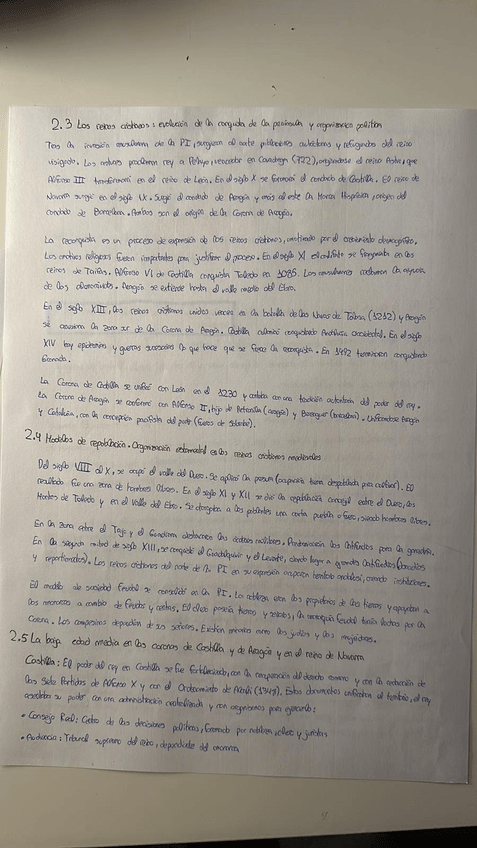 2.3 Los reinos cristianos: evolución de la conquista de la península y organización política
Tras la invasión musulmana de la PI, surgieron al norte poblaciones autóctonas y refugiados del reino
visigodo. Los astures proclaman rey a Pelayo, vencedor en Covadonga (722), originándose el reino Astur, que
Alfonso III transformará en el reino de León. En el siglo X se formará el condado de Castilla. El reino de
Navarra surge en el siglo IX. Surgió el condado de Aragón y más al este la Marca Hispánica, origen del
condado de Barcelona. Ambos son el origen de la Corona de Aragón.
La reconquista es un proceso de expansión de los reinos cristianos, motivado por el crecimiento demográfico.
Los motivos religiosos fueron importantes para justificar el proceso. En el siglo XI el califato se fragmenta en los
reinos de Taifas. Alfonso VI de Castilla conquista Toledo en 1085. Los musulmanes reciben la ayuda
de los almorávides. Aragón se extiende hasta el valle medio del Ebro.
En el siglo XIII, los reinos cristianos unidos vencen en la batalla de las Navas de Tolosa (1212) y Aragón
se la zona sur de la Corona de Aragón. Castilla conquistando Andalucía occidental. En el siglo
XIV hay epidemias y guerras sucesorias lo que hace que se frene la reconquista. En 1492 terminaron conquistando
Granada.
La Corona de Castilla se unificó con León en el 1230 y contaba con una tradición autoritaria del poder del rey.
La Corona de Aragón se conformó con Alfonso II, hijo de Petronila (Aragón) y Berenguer (Barcelona). Unificándose Aragón
y Cataluña, con la concepción pactista del poder (fueros de Sobrarbe).
2.4 Modelos de repoblación. Organización estamental en los reinos cristianos medievales
Del siglo VIII al X, se ocupó el valle del Duero. Se aplicó la presura (ocupación tierra despoblada para cultivar). El
resultado fue una zona de hombres libres. En el siglo XI y XII se dio la repoblación concejil entre el Duero, los
Montes de Toledo y en el valle del Ebro. Se otorgaba a los pobladores una carta puebla o fuero, siendo hombres libres.
En la zona entre el Tajo y el Guadiana destacaron las órdenes militares. Predominaron los latifundios para la ganadería.
En la segunda mitad de siglo XIII, se conquistó el Guadalquivir y el Levante, dando lugar a grandes latifundios (donadíos
y repartimientos). Los reinos cristianos del norte de la PI en su expansión ocuparon territorio andalusí, creando instituciones.
El modelo de sociedad feudal se consolidó en la PI. La nobleza eran los propietarios de las tierras y apoyaban a
los monarcas a cambio de feudos y rentas. El clero poseía tierras y la monarquía feudal tenía por la
Corona. Los campesinos dependían de sus señores. Existían minorías como los judíos y los mudéjares.
2.5 La baja edad media en las coronas de Castilla y de Aragón y en el reino de Navarra
Castilla: El poder del rey en Castilla se fue fortaleciendo, con la recuperación del derecho romano y con la redacción de
las Siete Partidas de Alfonso X y con el Ordenamiento de Alcalá (1348). Estos documentos unificaron el territorio, el rey
su poder con una administración centralizada y con organismos para ejercerlo:
• Consejo Real: Centro de las decisiones políticas, formado por nobleza, clero y juristas
• Audiencia: Tribunal supremo del reino, dependiente del monarca